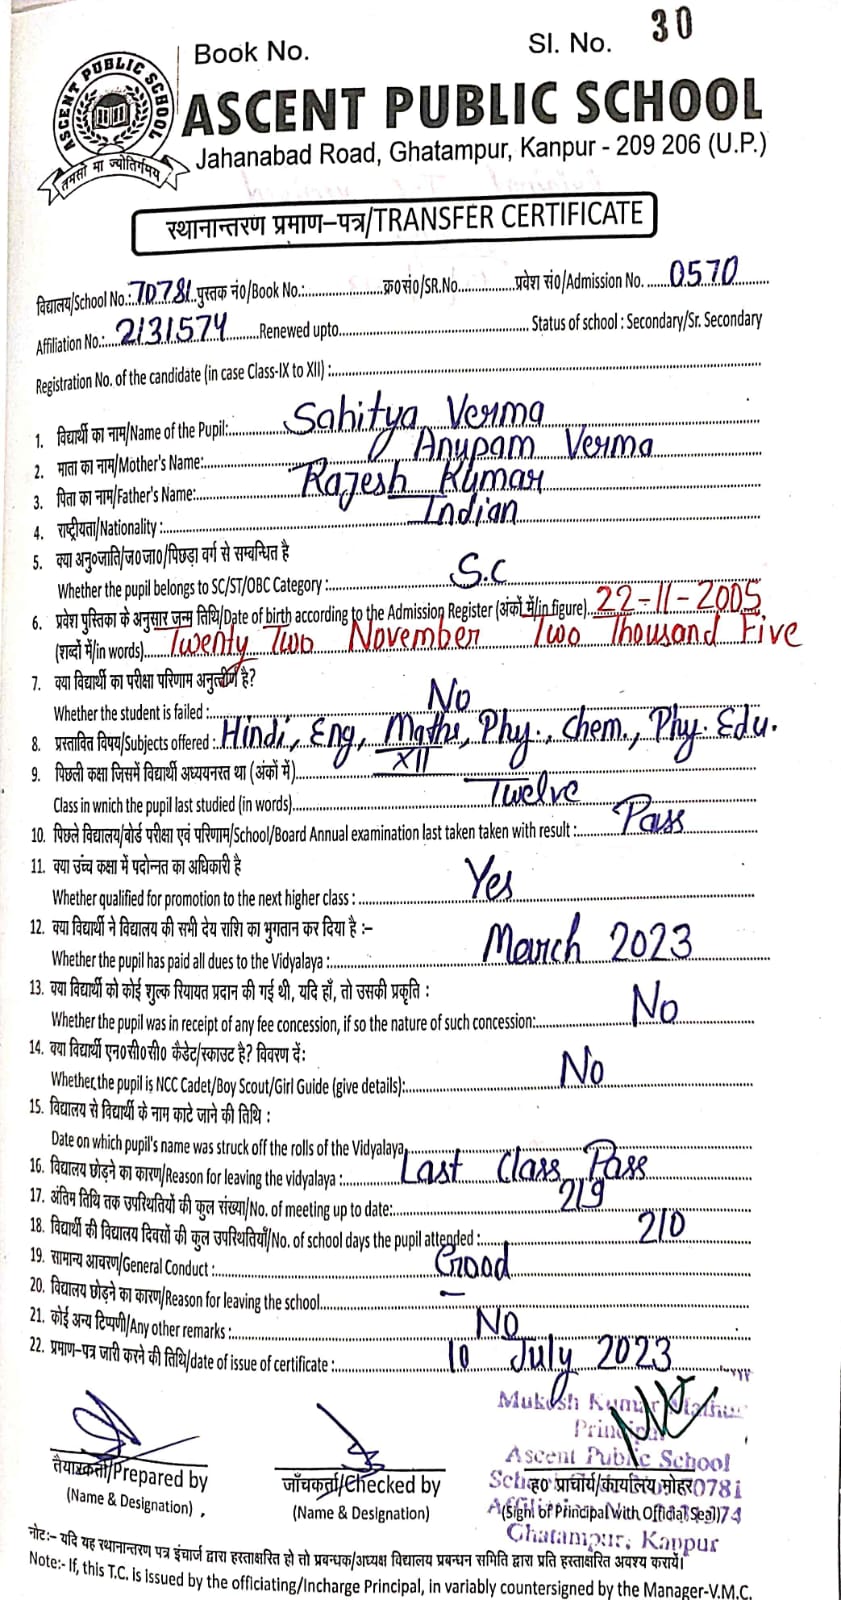 Book No. Sl. No. 30
ASCENT PUBLIC SCHOOL
ASCENT PUBLIC SCHOOL
तमसो मा ज्योतिर्गमय
Jahanabad Road, Ghatampur, Kanpur - 209 206 (U.P.)
स्थानान्तरण प्रमाण-पत्र/TRANSFER CERTIFICATE
विद्यालय/School No.: 70781 पुस्तक नं0/Book No.:..........क्र0सं0/SR.No..........प्रवेश सं0/Admission No. ......0570
Affiliation No.: 2131574 Renewed upto.......... Status of school : Secondary/Sr. Secondary
Registration No. of the candidate (in case Class-IX to XII) :..........
1. विद्यार्थी का नाम/Name of the Pupil: Sahitya Verma
2. माता का नाम/Mother's Name: Anupam Verma
3. पिता का नाम/Father's Name: Rajesh Kumar
4. राष्ट्रीयता/Nationality : Indian
5. क्या अनु०जाति/ज०जा०/पिछड़ा वर्ग से सम्बन्धित है
Whether the pupil belongs to SC/ST/OBC Category : S.C
6. प्रवेश पुस्तिका के अनुसार जन्म तिथि/Date of birth according to the Admission Register (अंकों में/in figure) 22-11-2005
(शब्दों में/in words) Twenty Two November Two Thousand Five
7. क्या विद्यार्थी का परीक्षा परिणाम अनुत्तीर्ण है?
Whether the student is failed : No
8. प्रस्तावित विषय/Subjects offered : Hindi, Eng, Maths, Phy., Chem., Phy. Edu.
9. पिछली कक्षा जिसमें विद्यार्थी अध्ययनरत था (अंकों में) XII
Class in wnich the pupil last studied (in words) Twelve
10. पिछले विद्यालय/बोर्ड परीक्षा एवं परिणाम/School/Board Annual examination last taken taken with result : Pass
11. क्या उच्च कक्षा में पदोन्नत का अधिकारी है
Whether qualified for promotion to the next higher class : Yes
12. क्या विद्यार्थी ने विद्यालय की सभी देय राशि का भुगतान कर दिया है :-
Whether the pupil has paid all dues to the Vidyalaya : March 2023
13. क्या विद्यार्थी को कोई शुल्क रियायत प्रदान की गई थी, यदि हाँ, तो उसकी प्रकृति :
Whether the pupil was in receipt of any fee concession, if so the nature of such concession: No
14. क्या विद्यार्थी एन०सी०सी० कैडेट/स्काउट है? विवरण दें:
Whether the pupil is NCC Cadet/Boy Scout/Girl Guide (give details): No
15. विद्यालय से विद्यार्थी के नाम काटे जाने की तिथि :
Date on which pupil's name was struck off the rolls of the Vidyalaya
16. विद्यालय छोड़ने का कारण/Reason for leaving the vidyalaya : Last Class Pass
17. अंतिम तिथि तक उपस्थितियों की कुल संख्या/No. of meeting up to date: 219
18. विद्यार्थी की विद्यालय दिवसों की कुल उपस्थितियाँ/No. of school days the pupil attended : 210
19. सामान्य आचरण/General Conduct : Good
20. विद्यालय छोड़ने का कारण/Reason for leaving the school. –
21. कोई अन्य टिप्पणी/Any other remarks : NO
22. प्रमाण-पत्र जारी करने की तिथि/date of issue of certificate : 10 July 2023
Mukesh Kumar Mathur
Principal
Ascent Public School
तैयारकर्ता/Prepared by जाँचकर्ता/Checked by ह0 प्राचार्य/कार्यालय मोहर 0781
(Name & Designation) (Name & Designation) (Sign of Principal With Official Seal) 74
Ghatampur, Kanpur
नोट:- यदि यह स्थानान्तरण पत्र इंचार्ज द्वारा हस्ताक्षरित हो तो प्रबन्धक/अध्यक्ष विद्यालय प्रबन्धन समिति द्वारा प्रति हस्ताक्षरित अवश्य करायें।
Note:- If, this T.C. is issued by the officiating/Incharge Principal, in variably countersigned by the Manager-V.M.C.